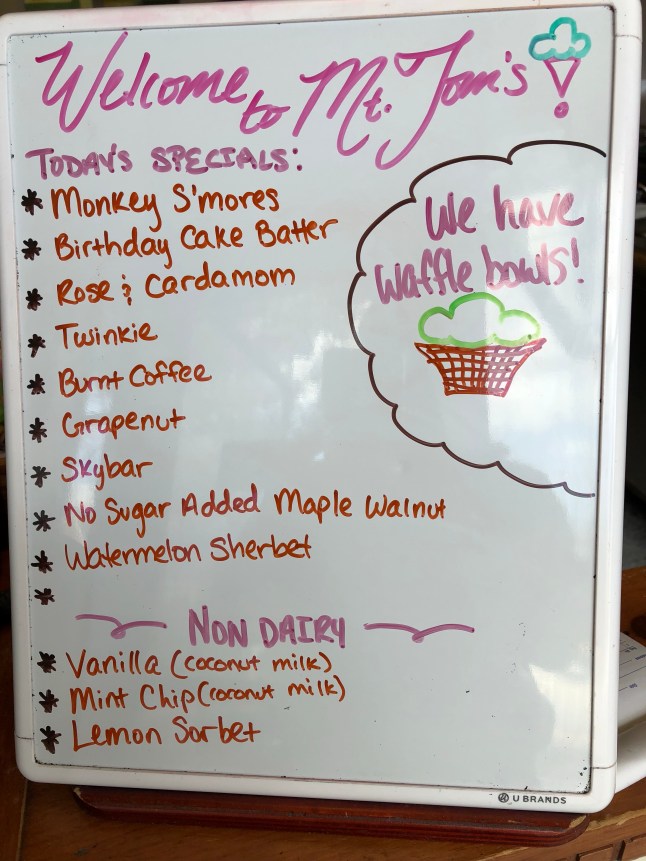 Welcome to Mt. Tom's
TODAY'S SPECIALS:
* Monkey S'mores
* Birthday Cake Batter
* Rose & Cardamom
* Twinkie
* Burnt Coffee
* Grapenut
* Skybar
* No Sugar Added Maple Walnut
* Watermelon Sherbet
*
We have
Waffle bowls!
NON DAIRY
* Vanilla (coconut milk)
* Mint Chip (coconut milk)
* Lemon Sorbet
U BRANDS